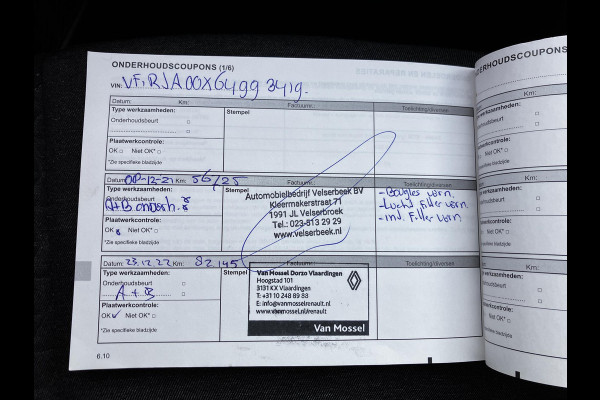 ONDERHOUDSCOUPONS (1/6)
VIN: VF1RJA00X64993419.
Datum: Km: Factuurnr.: Toelichting/diversen
Type werkzaamheden: Stempel
Onderhoudsbeurt
Plaatwerkcontrole:
OK Niet OK*
*Zie specifieke bladzijde
Datum: -12-21 Km: 56125 Factuurnr.: Toelichting/diversen
Type werkzaamheden: Stempel
Onderhoudsbeurt
A+B ondersh.
Plaatwerkcontrole:
OK Niet OK*
*Zie specifieke bladzijde
Automobielbedrijf Velserbeek BV
Kleermakerstraat 71
1991 JL Velserbroek
Tel.: 023-513 29 29
www.velserbeek.nl
- Bougies vern.
- Lucht Filter vern.
- int. Filter vern
Datum: 23.12.22 Km: 82.145 Factuurnr.: Toelichting/diversen
Type werkzaamheden: Stempel
Onderhoudsbeurt
A + B
Plaatwerkcontrole:
OK Niet OK*
*Zie specifieke bladzijde
Van Mossel Dorzo Vlaardingen
Hoogstad 101
3131 KX Vlaardingen
T: +31 10 248 89 83
E: info@vanmosselrenault.nl
www.vanmossel.nl/renault
Van Mossel
6.10
ONDERHOUDSCOUPONS
VIN:
Datum:
Type werkzaamheden:
Onderhoudsbeurt
Plaatwerkcontrole:
OK Niet OK*
*Zie specifieke bladzijde
Datum:
Type werkzaamheden:
Onderhoudsbeurt
Plaatwerkcontrole:
OK Niet OK*
*Zie specifieke bladzijde
Datum:
Type werkzaamheden:
Onderhoudsbeurt
Plaatwerkcontrole:
OK Niet OK*
*Zie specifieke bladzijde